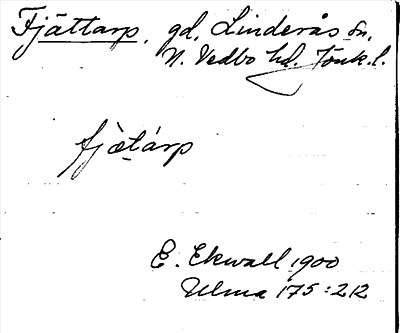 Fjättarp, gd, Linderås sn,
N. Vedbo hd. Jönk. l.
fjætárp
E. Ekwall 1900
Ulma 175:212